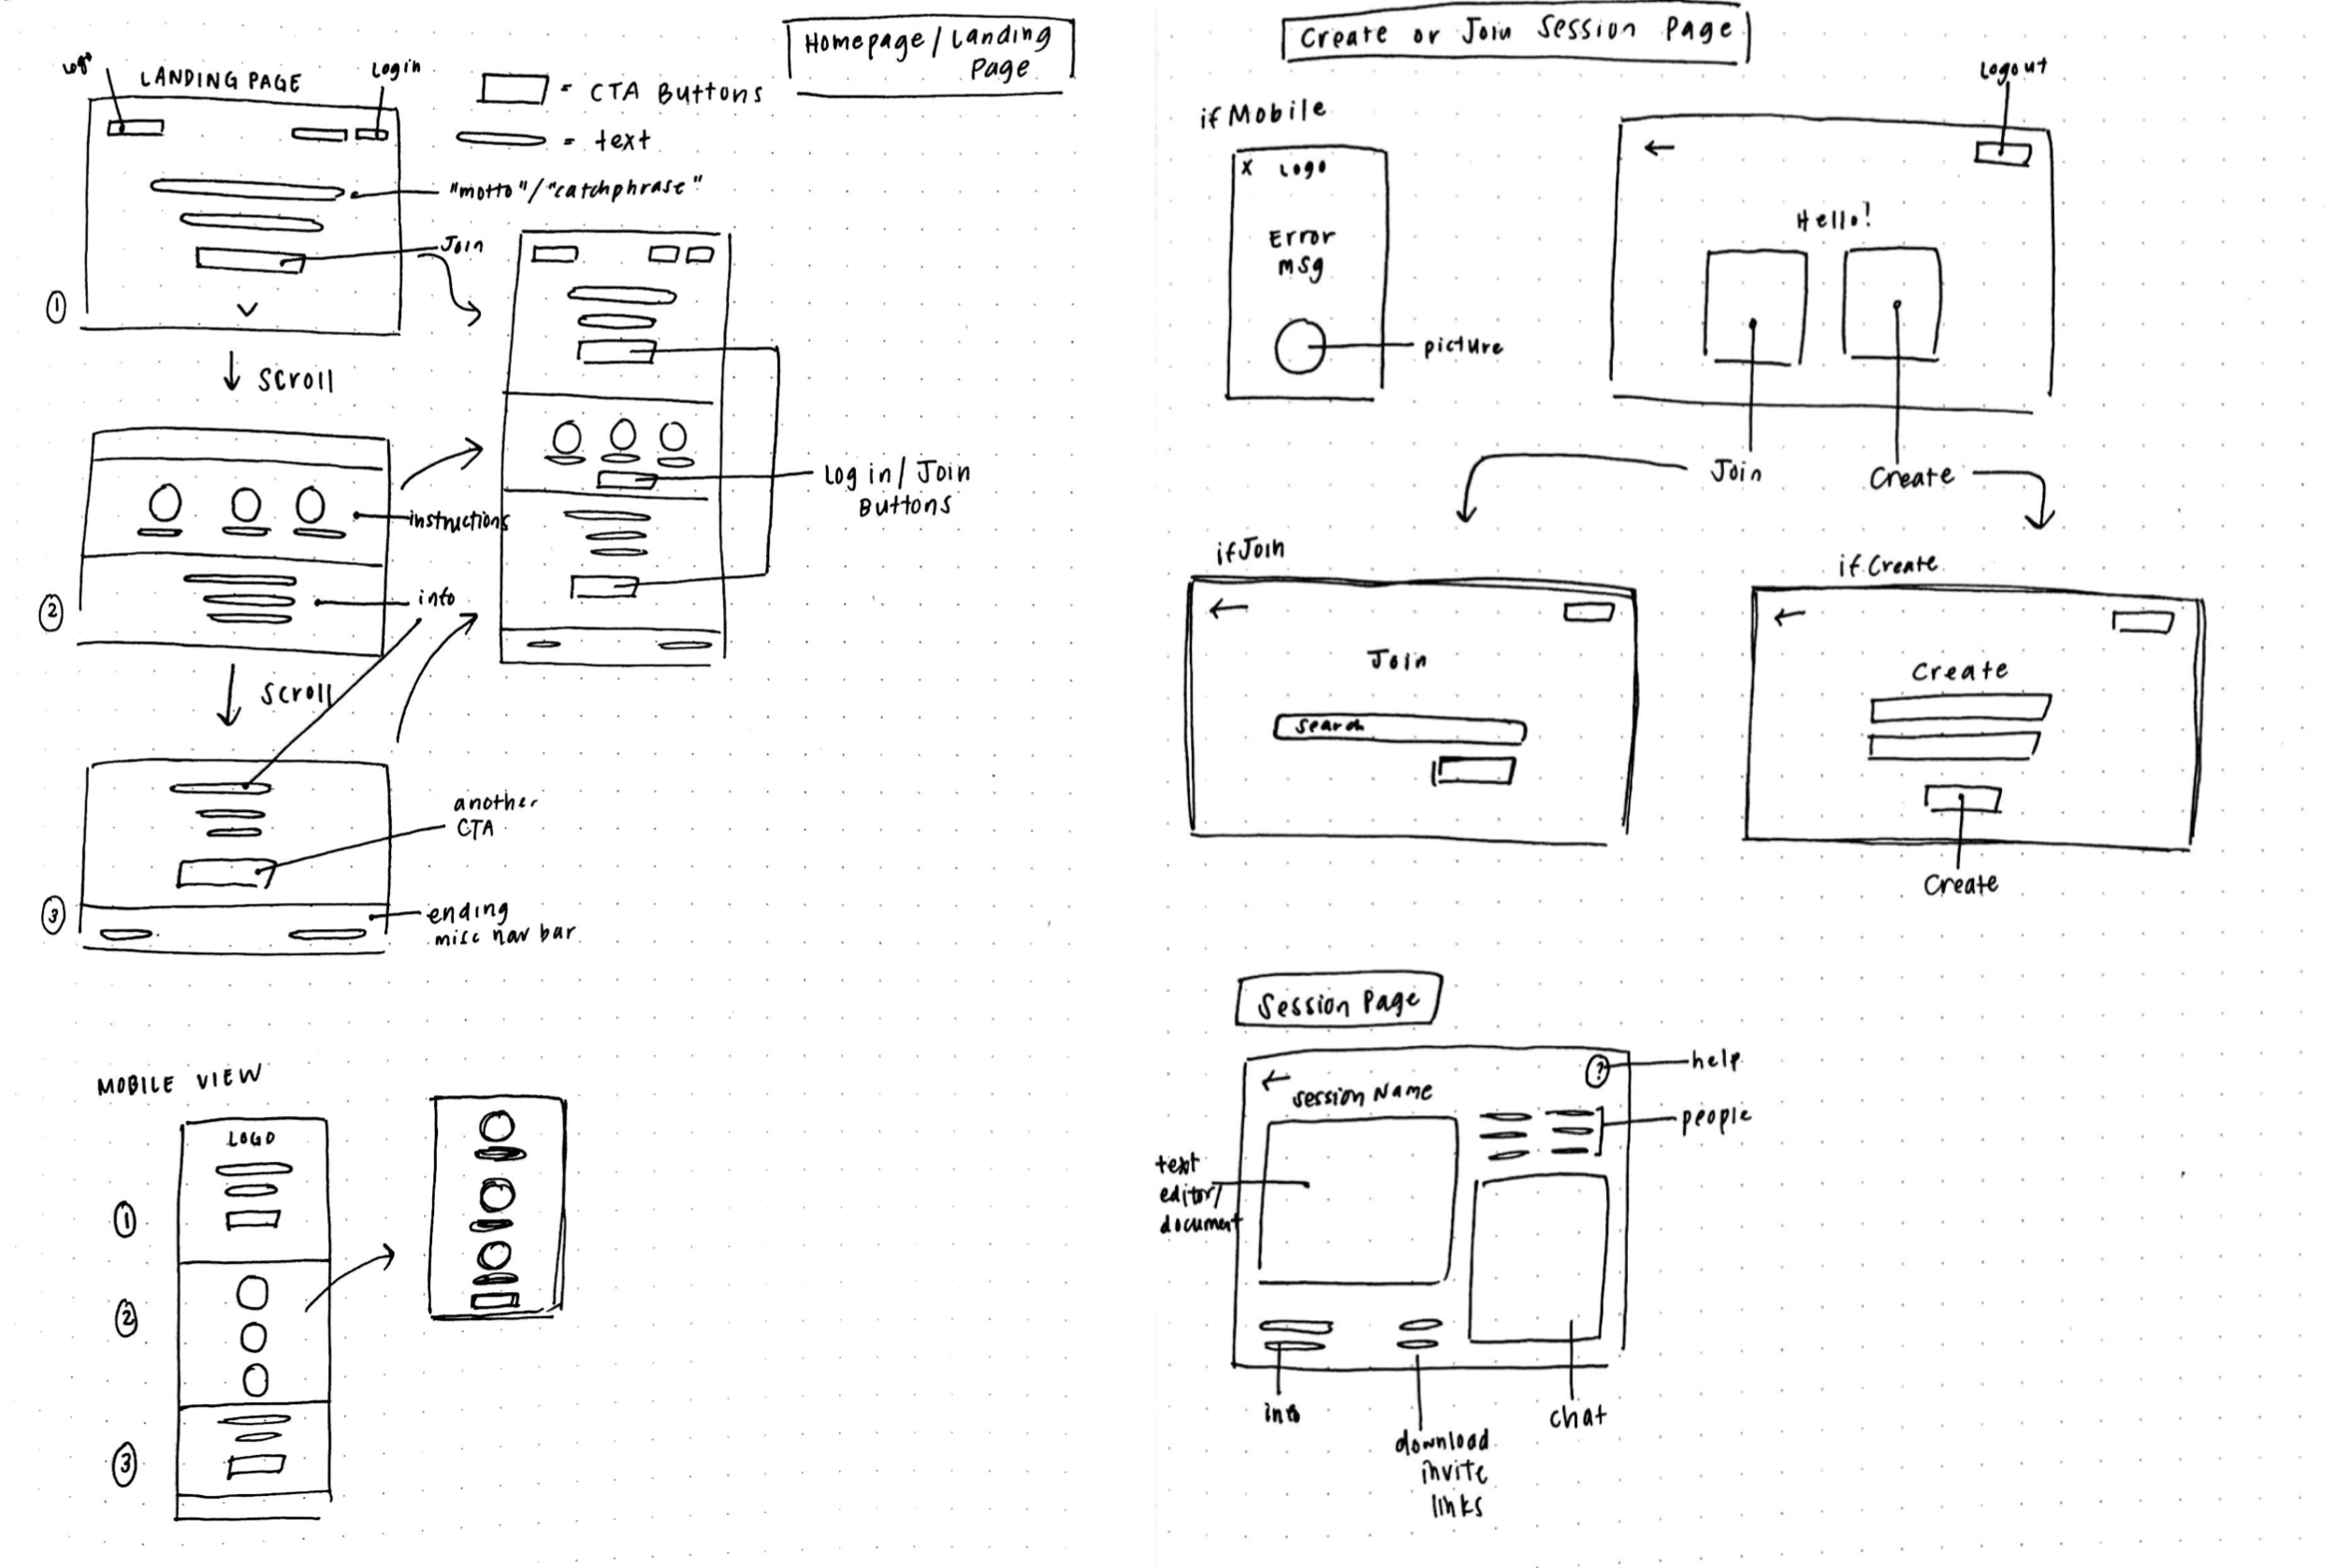 Homepage/Landing
Page
Logo
LANDING PAGE
Login
= CTA Buttons
= text
"motto"/"catchphrase"
Join
1
↓ scroll
instructions
Log in/Join
Buttons
info
2
↓ scroll
another
CTA
3
ending
misc nav bar
MOBILE VIEW
LOGO
1
2
3
Create or Join Session Page
Logout
if Mobile
X Logo
Error
msg
picture
←
Hello!
Join
Create
if Join
←
Join
search
if Create
←
Create
Create
Session Page
←
? help
Session Name
people
text
editor/
document
info
download
invite
links
chat